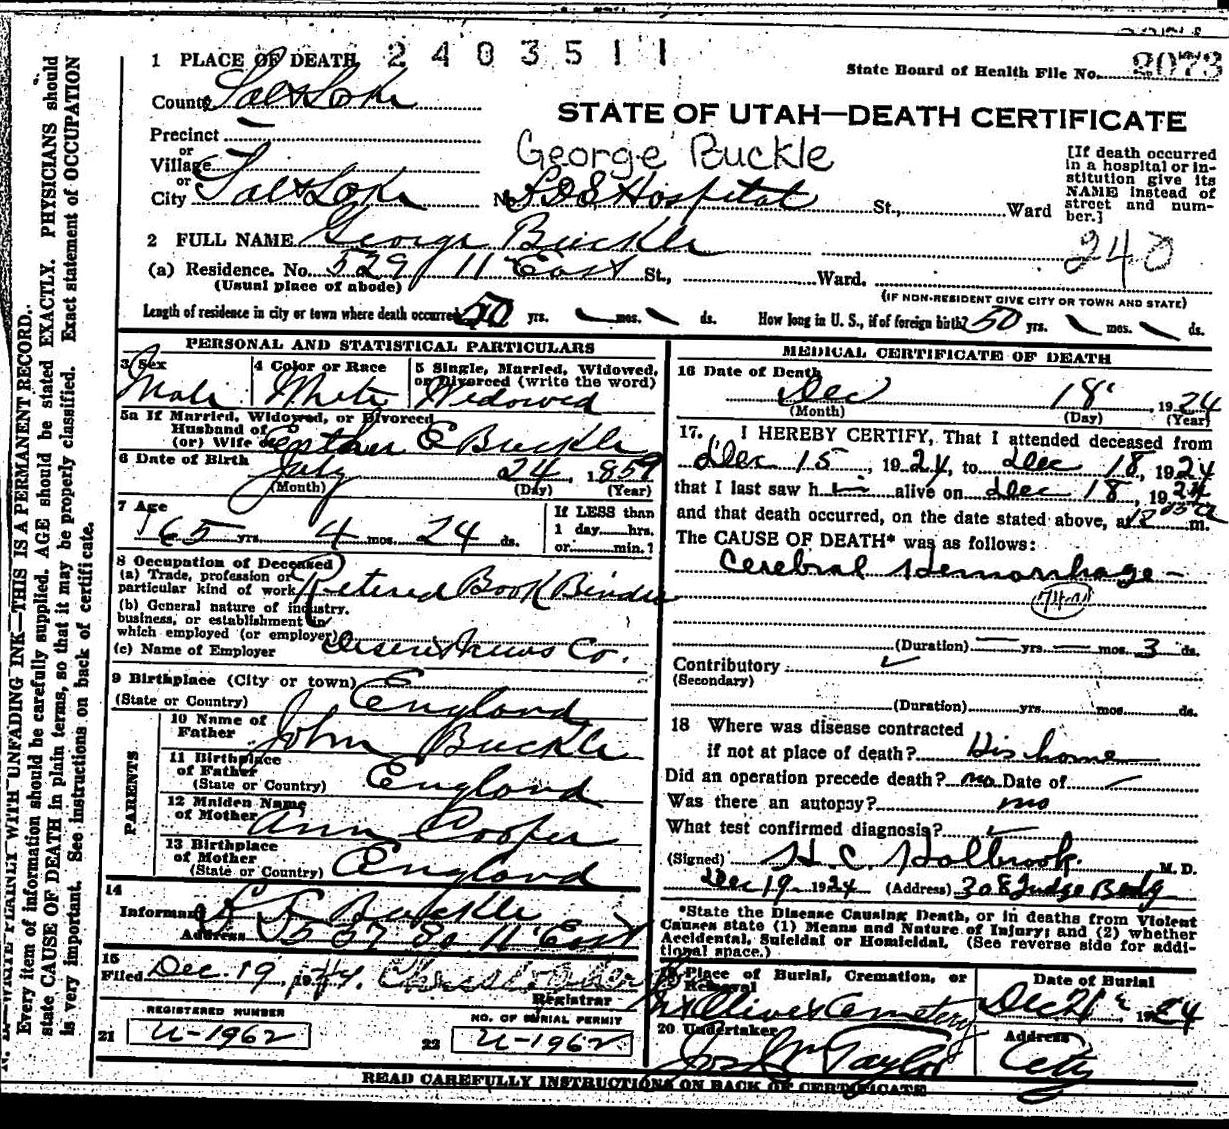 2403511
State Board of Health File No. 2073
1 PLACE OF DEATH
County Salt Lake
STATE OF UTAH—DEATH CERTIFICATE
Precinct
or
Village
or
City Salt Lake No. L D S Hospital St., Ward
George Buckle
[If death occurred
in a hospital or in-
stitution give its
NAME instead of
street and num-
ber.]
2 FULL NAME George Buckle
240
(a) Residence. No. 529 11 East St., Ward.
(Usual place of abode)
(IF NON-RESIDENT GIVE CITY OR TOWN AND STATE)
Length of residence in city or town where death occurred 50 yrs. mos. ds. How long in U. S., if of foreign birth? 50 yrs. mos. ds.
PERSONAL AND STATISTICAL PARTICULARS
3 Sex
Male
4 Color or Race
White
5 Single, Married, Widowed,
or Divorced (write the word)
Widowed
5a If Married, Widowed, or Divorced
Husband of
(or) Wife of Esther E Buckle
6 Date of Birth July 24, 1859
(Month) (Day) (Year)
7 Age
65 yrs. 4 mos. 24 ds.
If LESS than
1 day......hrs.
or......min.?
8 Occupation of Deceased
(a) Trade, profession or
particular kind of work Retired Book Binder
(b) General nature of industry,
business, or establishment in
which employed (or employer)
(c) Name of Employer Deseret News Co.
9 Birthplace (City or town)
(State or Country) England
PARENTS
10 Name of
Father John Buckle
11 Birthplace
of Father
(State or Country) England
12 Maiden Name
of Mother Ann Cooper
13 Birthplace
of Mother
(State or Country) England
14
Informant Buckle
Address 537 So 11 East
15
Filed Dec. 19, 1924.
Registrar
REGISTERED NUMBER
21 U-1962
NO. OF BURIAL PERMIT
22 U-1962
MEDICAL CERTIFICATE OF DEATH
16 Date of Death
Dec 18 1924
(Month) (Day) (Year)
17. I HEREBY CERTIFY, That I attended deceased from
Dec 15, 1924, to Dec 18, 1924
that I last saw him alive on Dec 18, 1924
and that death occurred, on the date stated above, at 12 m.
The CAUSE OF DEATH* was as follows:
Cerebral Hemorrhage
(Duration) yrs. mos. 3 ds.
Contributory
(Secondary)
(Duration) yrs. mos. ds.
18 Where was disease contracted
if not at place of death? His home
Did an operation precede death? no Date of
Was there an autopsy? no
What test confirmed diagnosis?
(Signed) H. C. Holbrook M. D.
Dec 19 1924 (Address) 308 Judge Bldg
*State the Disease Causing Death, or in deaths from Violent
Causes state (1) Means and Nature of Injury; and (2) whether
Accidental, Suicidal or Homicidal. (See reverse side for addi-
tional space.)
19 Place of Burial, Cremation, or
Removal
Mt Olivet Cemetery
Date of Burial
Dec 21, 1924
20 Undertaker
Jos Wm Taylor
Address
City
READ CAREFULLY INSTRUCTIONS ON BACK OF CERTIFICATE
WRITE PLAINLY WITH UNFADING INK—THIS IS A PERMANENT RECORD.
Every item of information should be carefully supplied. AGE should be stated EXACTLY. PHYSICIANS should
state CAUSE OF DEATH in plain terms, so that it may be properly classified. Exact statement of OCCUPATION
is very important. See instructions on back of certificate.